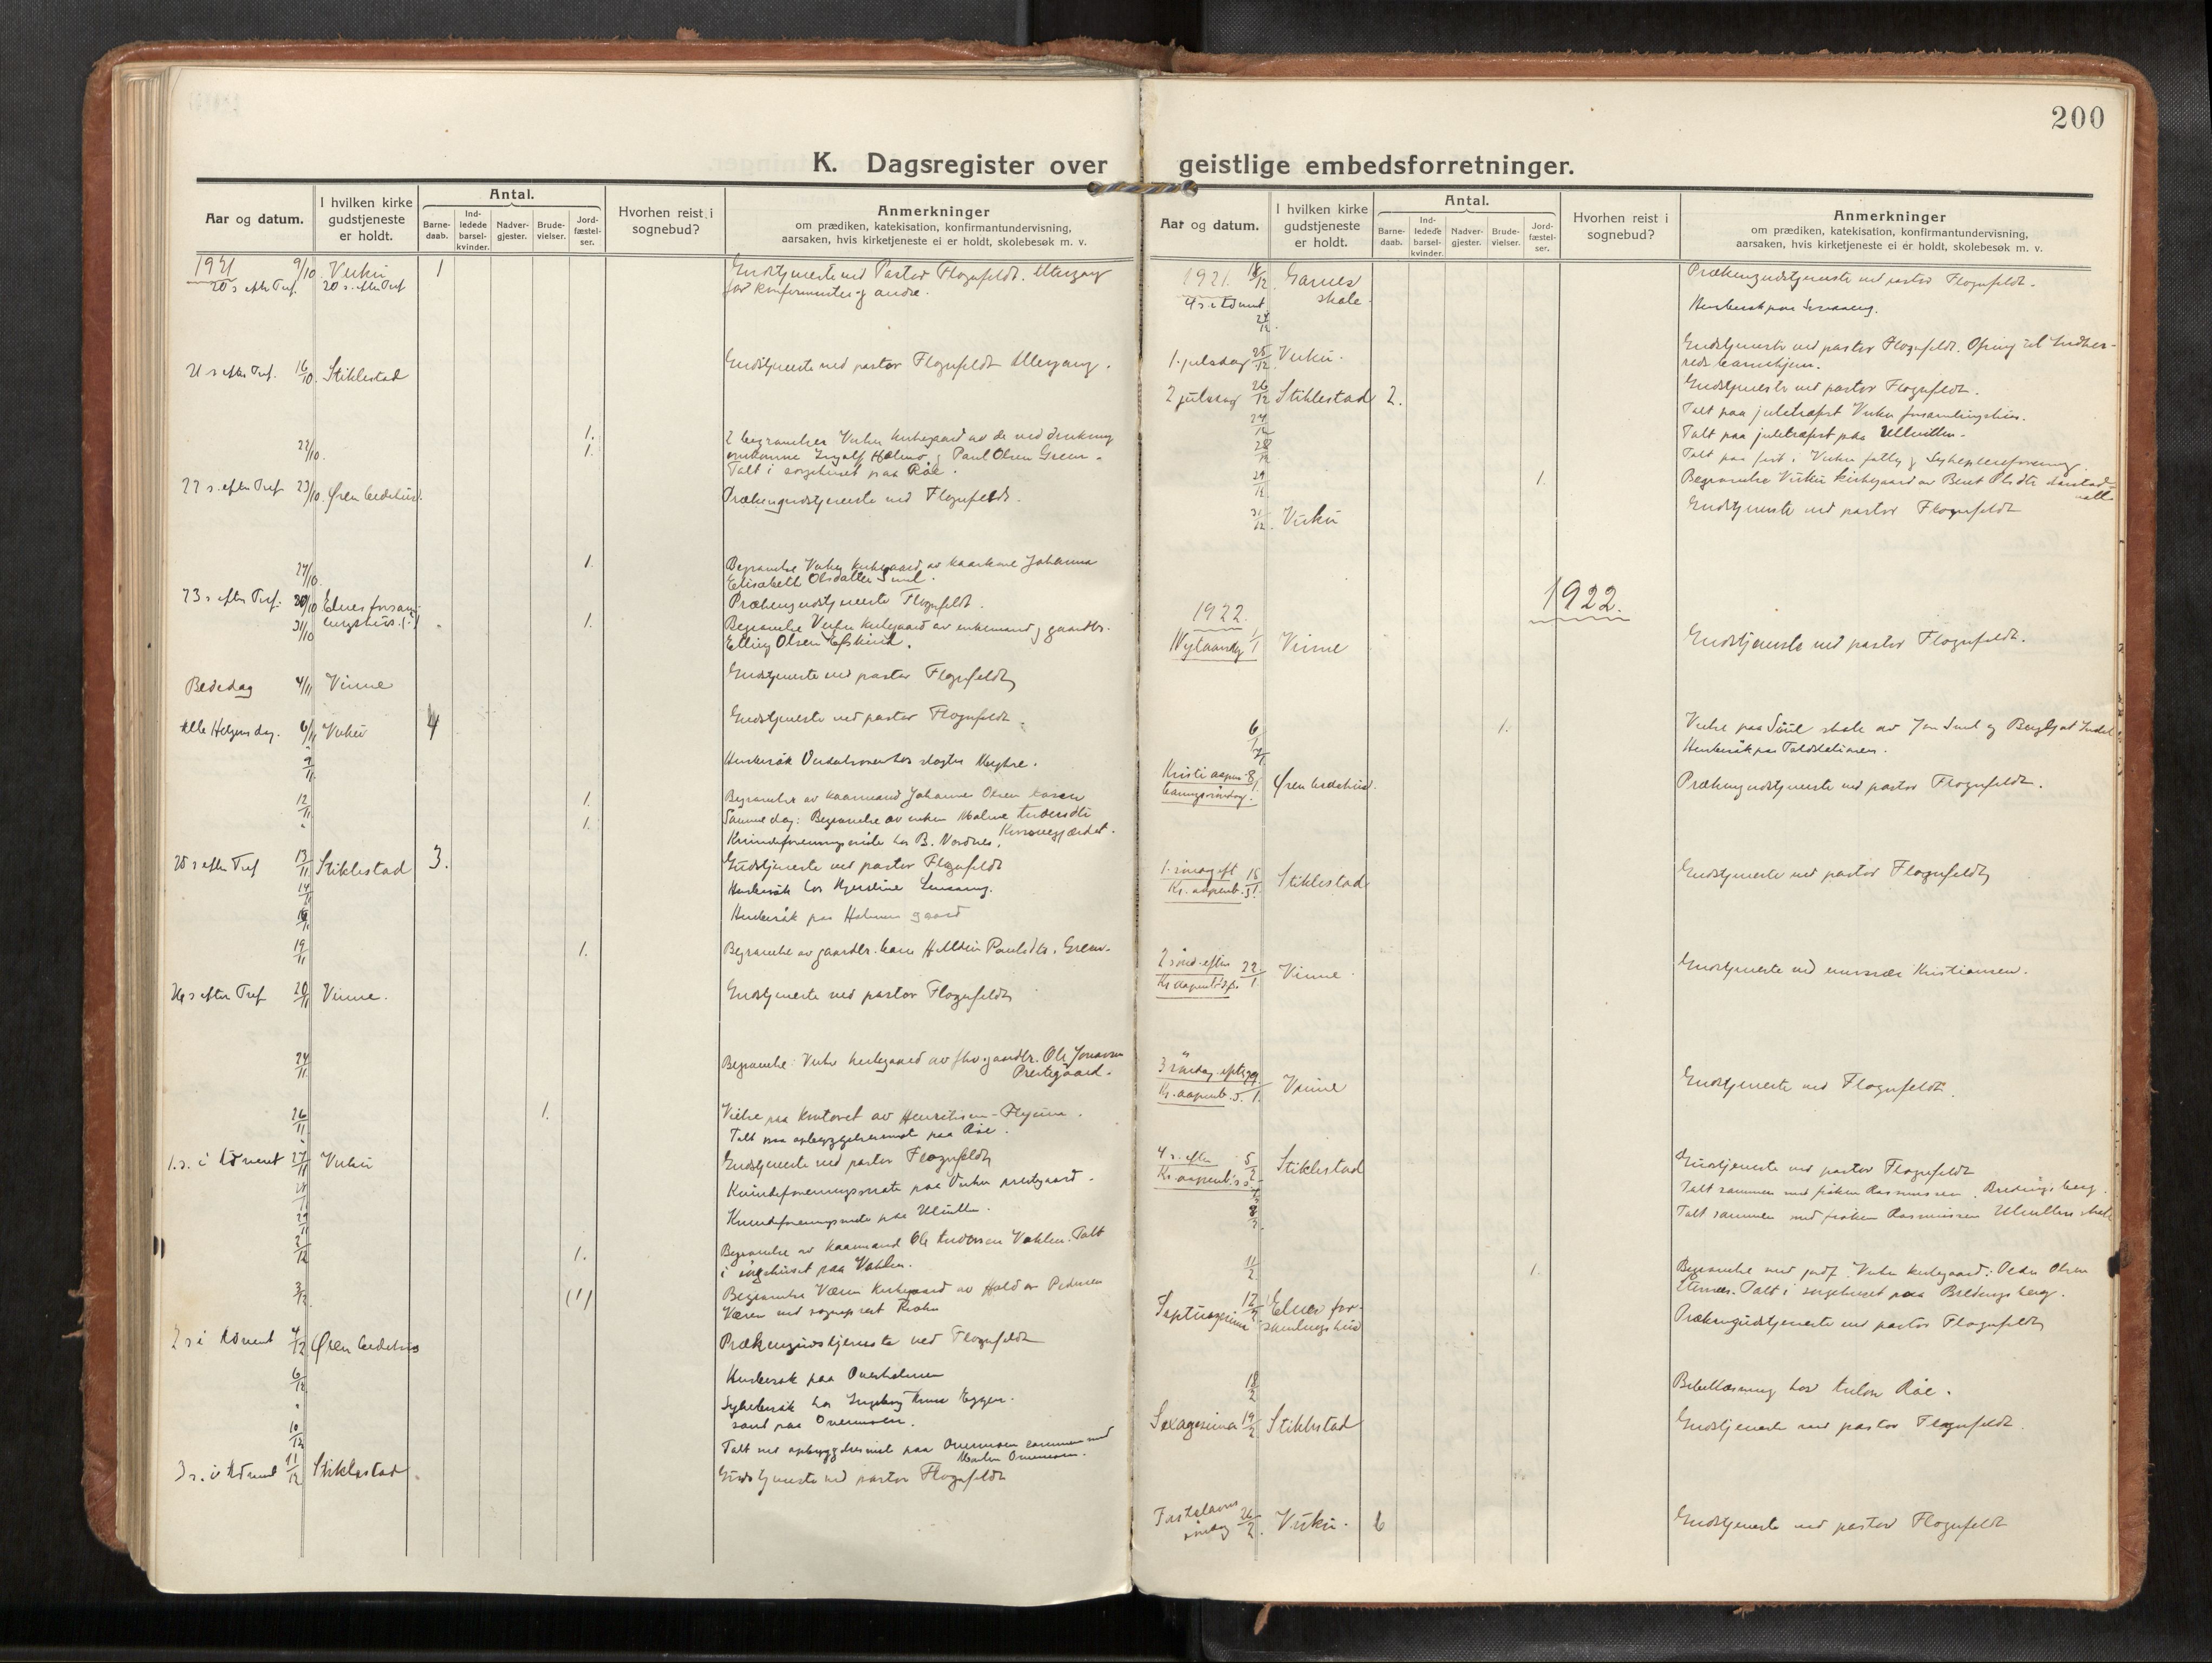 200
K. Dagsregister over geistlige embedsforretninger.
Aar og datum.
I hvilken kirke gudstjeneste er holdt.
Antal.
Barne-daab.
Ind-ledede barsel-kvinder.
Nadver-gjester.
Brude-vielser.
Jord-fæstel-ser.
Hvorhen reist i sognebud?
Anmerkninger
om prædiken, katekisation, konfirmantundervisning,
aarsaken, hvis kirketjeneste ei er holdt, skolebesøk m. v.
1921 9/10 Vuku 1 Gudstjeneste ved Pastor Flognfeldt. Altergang
20 s. efter Tref. 20 s. efter Tref for konfirmanter og andre.
21 s efter Tref. 16/10 Stiklestad Gudstjeneste ved pastor Flognfeldt Altergang.
22/10. 1. 2 begravelser Vuku kirkegaard av de ved drukning
1. omkomne Ingolf Holmo og Paul Olsen
Talt i sørgehuset paa Råe.
22 s. efter Tref 23/10. Øren bedehus. Prækengudstjeneste ved Flognfeldt.
27/10. 1. Begravelse Vuku kirkegaard av kaarkone Johanna
Elisabeth Olsdatter Suul.
23 s efter Tref. 30/10 Elnes forsam- Prækengudstjeneste Flognfeldt.
31/10 lingshus. 1. Begravelse Vuku kirkegaard av enkemand og gaardbr.
Elling Olsen
Bededag 4/11 Vinne Gudstjeneste ved pastor Flognfeldt
Alle Helgens dag. 6/11 Vuku 4 Gudstjeneste ved pastor Flognfeldt.
9/11 Husbesøk
12/11 1. Begravelse av kaarmand Johannes Olsen
" 1. Samme dag: Begravelse av enken
Kvindeforeningsmøte hos B. Nordnes.
25 s efter Tref 13/11 Stiklestad 3. Gudstjeneste ved pastor Flognfeldt
14/11 Husbesøk hos
Husbesøk paa Holmen gaard
19/11 1. Begravelse av gaardbr. kone
26 s efter Tref 20/11 Vinne. Gudstjeneste ved pastor Flognfeldt
24/11 Begravelse: Vuku kirkegaard av fhv. gaardbr. Ole
Prestegaard.
26/11 1. Vielse paa kontoret av
" Talt ved opbyggelsesmøte paa Råe.
1. s. i Advent 27/11 Vuku Gudstjeneste ved pastor Flognfeldt
28/11 Kvindeforeningsmøte paa Vuku prestgaard.
29/11 Kvindeforeningsmøte paa Ulvillen.
2/12 1. Begravelse av kaarmand Ole Andersen Vohlen. Talt
i sørgehuset paa Vohlen.
3/12 (1) Begravelse Væren kirkegaard av Halvor Pedersen
Væren ved sogneprest
2 s i Advent 4/12 Øren bedehus Prækengudstjeneste ved Flognfeldt
6/12 Husbesøk paa Overholmen
" Sykebesøk hos Ingeborg Anna Eggen.
samt paa Overmoen.
10/12 Talt ved opbyggelsesmøte paa Overmoen sammen med
Overmoen.
3 s. i Advent 11/12 Stiklestad. Gudstjeneste ved pastor Flognfeldt
Aar og datum.
I hvilken kirke gudstjeneste er holdt.
Antal.
Barne-daab.
Ind-ledede barsel-kvinder.
Nadver-gjester.
Brude-vielser.
Jord-fæstel-ser.
Hvorhen reist i sognebud?
Anmerkninger
om prædiken, katekisation, konfirmantundervisning,
aarsaken, hvis kirketjeneste ei er holdt, skolebesøk m. v.
1921. 18/12 Garnes Prækengudstjeneste ved pastor Flognfeldt.
4 s i Advent skole.
Husbesøk paa
1. juledag 25/12 Vuku. Gudstjeneste ved pastor Flognfeldt. Ofring til Indher-
reds barnehjem.
2 juledag 26/12 Stiklestad 2. Gudstjeneste ved pastor Flognfeldt.
27/12 Talt paa juletræfest Vuku forsamlingshus.
28/12 Talt paa juletræfest paa Ulvillen.
Talt paa fest i Vuku fattig og Sykepleieforening
29/12 1. Begravelse Vuku kirkegaard av Beret Olsdtr
31/12. Vuku Gudstjeneste ved pastor Flognfeldt
1922.
1922.
Nytaarsdag 1/1 Vinne Gudstjeneste ved pastor Flognfeldt.
6/1 1. Vielse paa Suul skole av Jon Suul og Bergljot Indal
7/1 Husbesøk paa Toldstationen.
Kristi aapen- 8/1
baringssøndag. Øren bedehus. Prækengudstjeneste ved pastor Flognfeldt.
1. søndag eft 15/1
Kr. aapenb. Stiklestad Gudstjeneste ved pastor Flognfeldt
2 sønd. efter 22/1
Kr aapenb. Vinne. Gudstjeneste ved emissær Kristiansen.
3 søndag efter 29/1
Kr. aapenb. Vinne Gudstjeneste ved Flognfeldt
4 s. efter 5/2
Kr. aapenb. Stiklestad Gudstjeneste ved pastor Flognfeldt
Talt sammen med frøken Rasmussen Bredingsberg.
Talt sammen med frøken Rasmussen Ulvillen skole
11/2 1. Begravelse med jordf. Vuku kirkegaard: Peder Olsen
Talt i sørgehuset paa Bredingsberg.
Septuagesima 12/2 Elnes for-
samlingshus Prækengudstjeneste ved pastor Flognfeldt
18/2 Bibellæsning hos Anton Råe.
Sexagesima 19/2 Stiklestad Gudstjeneste ved pastor Flognfeldt.
Fastelavns
søndag 26/2. Vuku. 6 Gudstjeneste ved pastor Flognfeldt